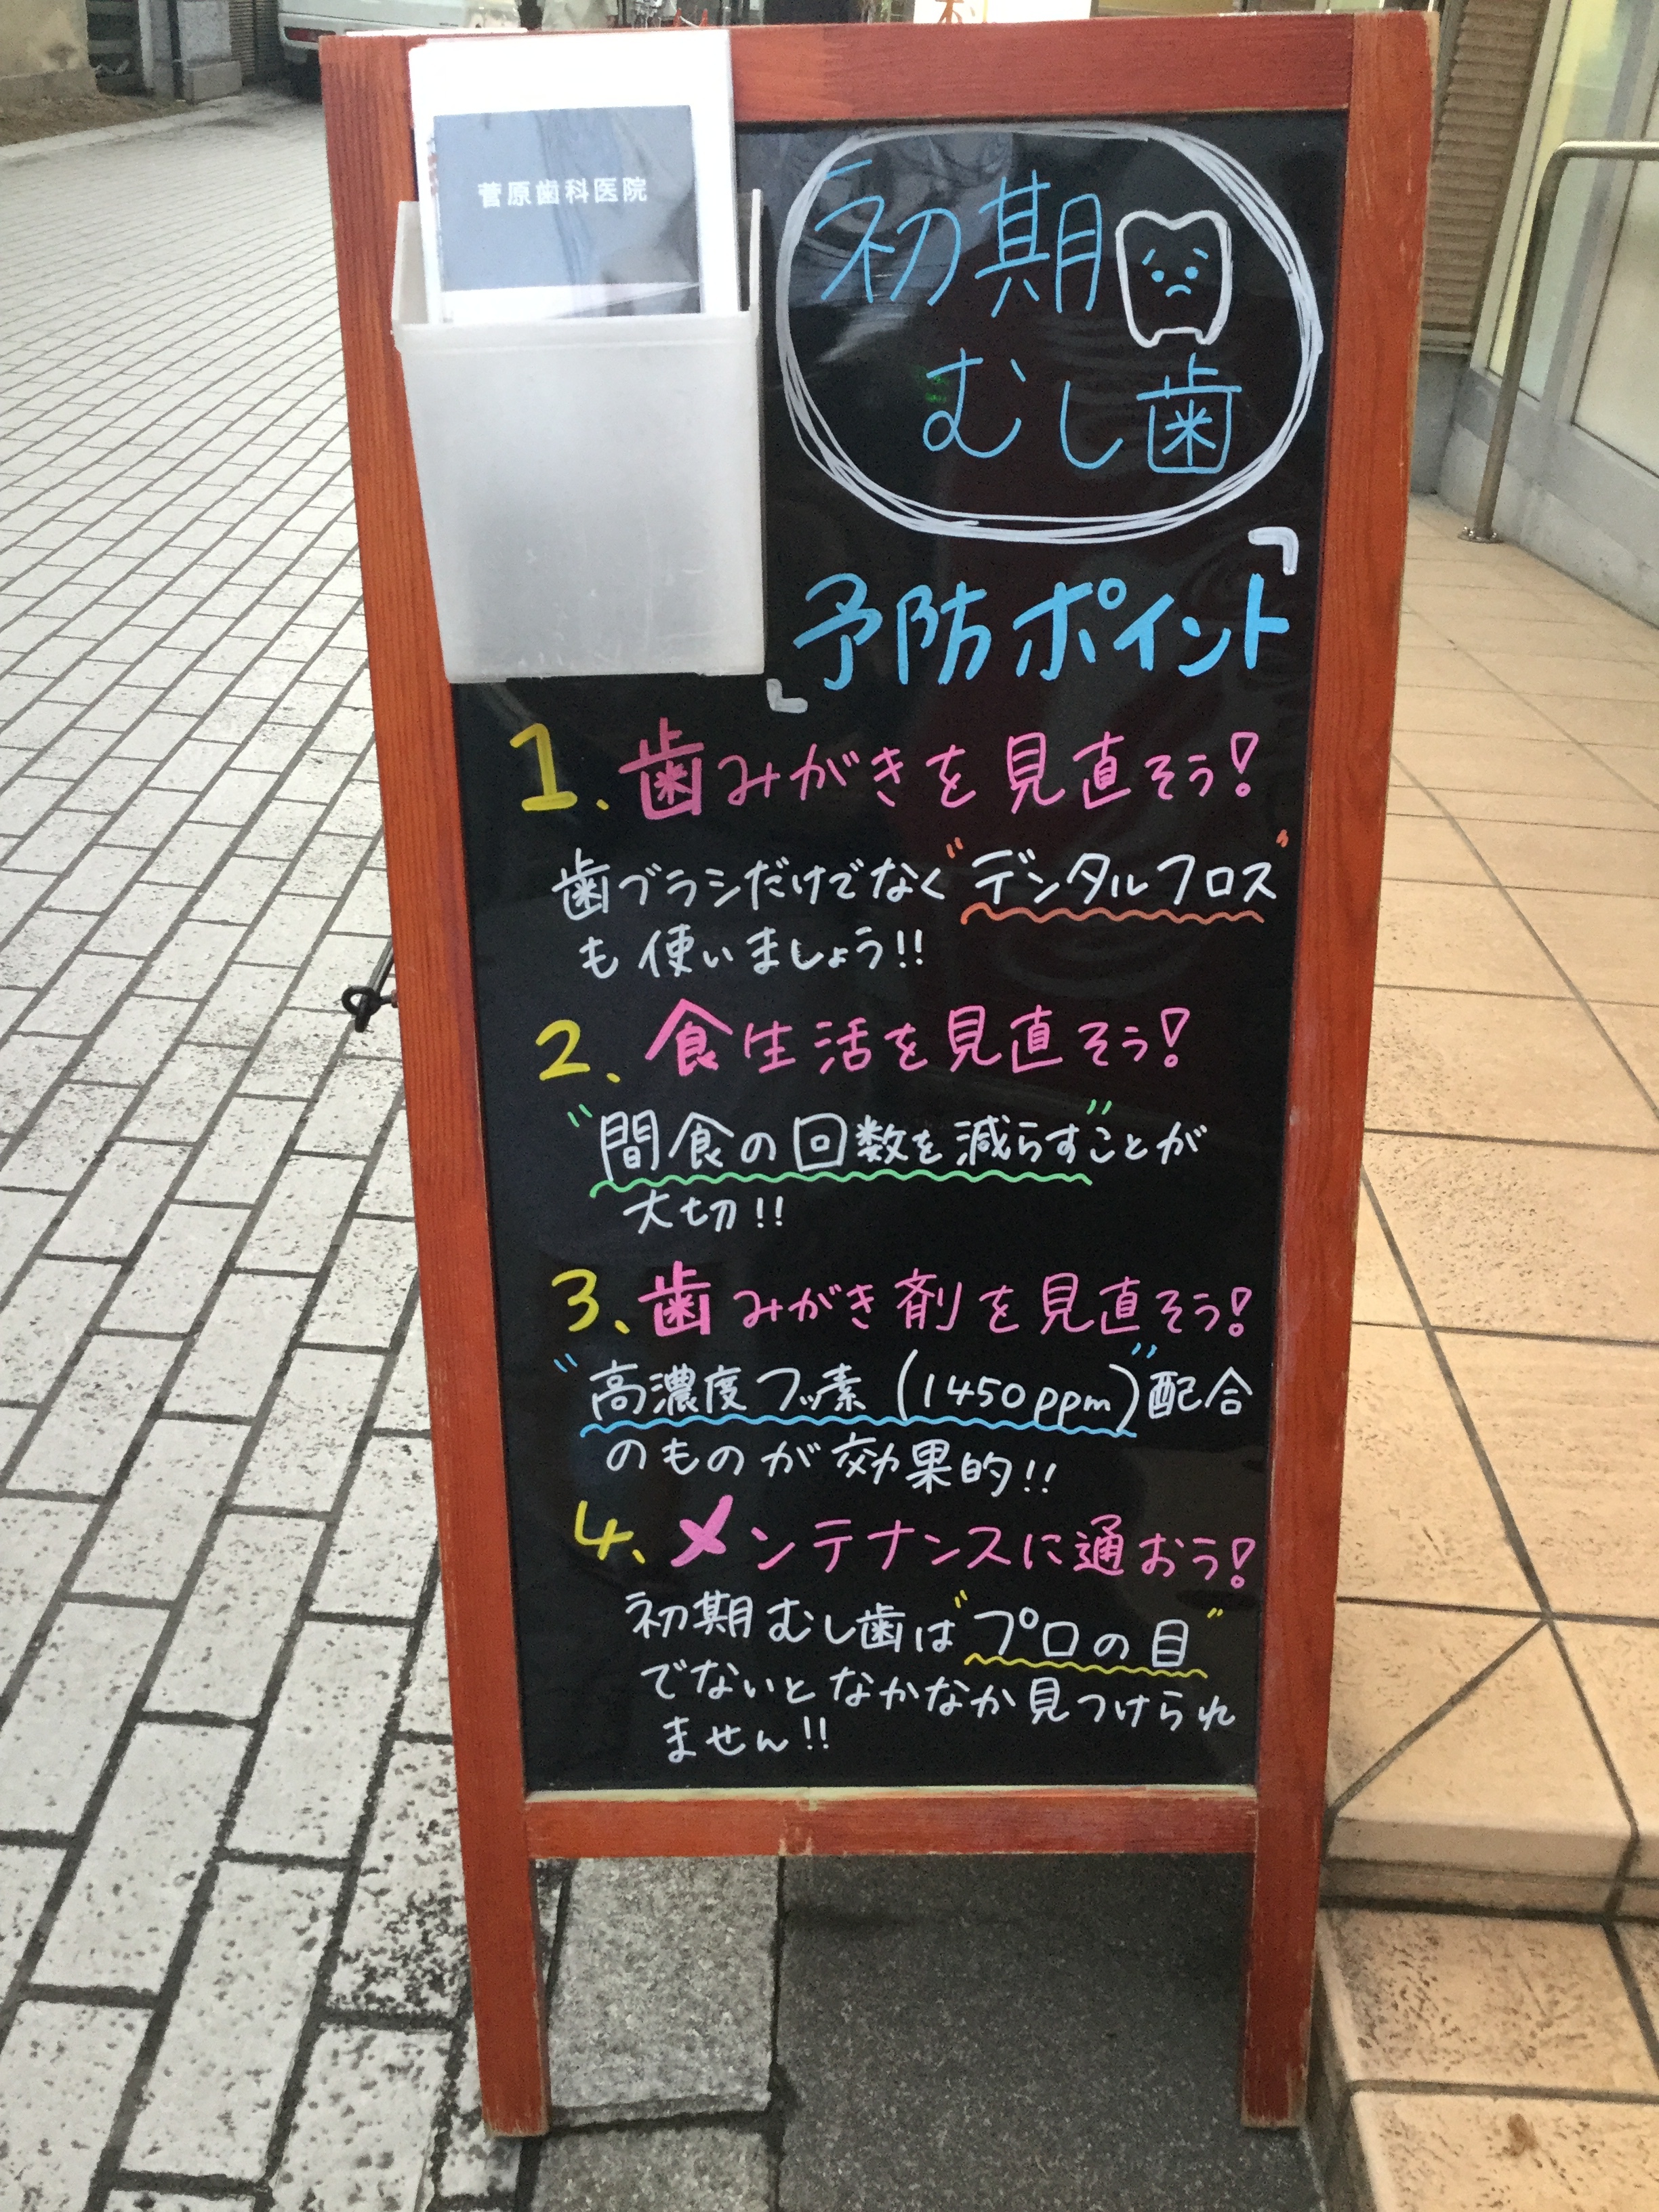 菅原歯科医院
初期
むし歯
予防ポイント
1. 歯みがきを見直そう!
歯ブラシだけでなく"デンタルフロス"
も使いましょう!!
2. 食生活を見直そう!
"間食の回数を減らす"ことが
大切!!
3. 歯みがき剤を見直そう!
"高濃度フッ素(1450ppm)"配合
のものが効果的!!
4. メンテナンスに通おう!
初期むし歯は"プロの目"
でないとなかなか見つけられ
ません!!